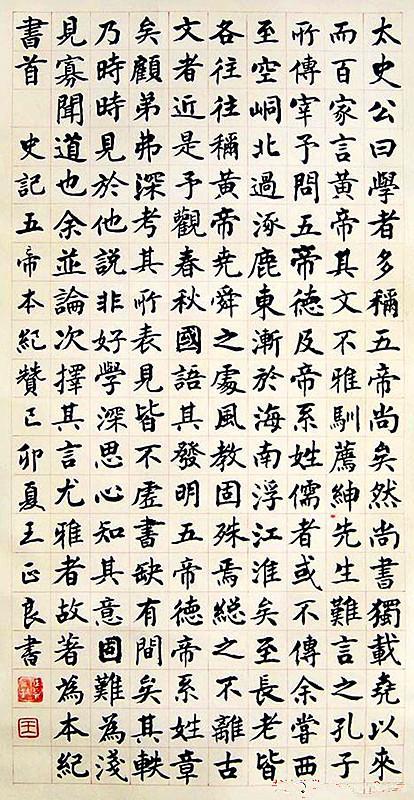 太史公曰學者多稱五帝尚矣然尚書獨載堯以來
而百家言黃帝其文不雅馴薦紳先生難言之孔子
所傳宰予問五帝德及帝系姓儒者或不傳余嘗西
至空峒北過涿鹿東漸於海南浮江淮矣至長老皆
各往往稱黃帝堯舜之處風教固殊焉總之不離古
文者近是予觀春秋國語其發明五帝德帝系姓章
矣顧弟弗深考其所表見皆不虛書缺有間矣其軼
乃時時見於他說非好學深思心知其意固難為淺
見寡聞道也余並論次擇其言尤雅者故著為本紀
書首 史記五帝本紀贊己卯夏王正良書
王